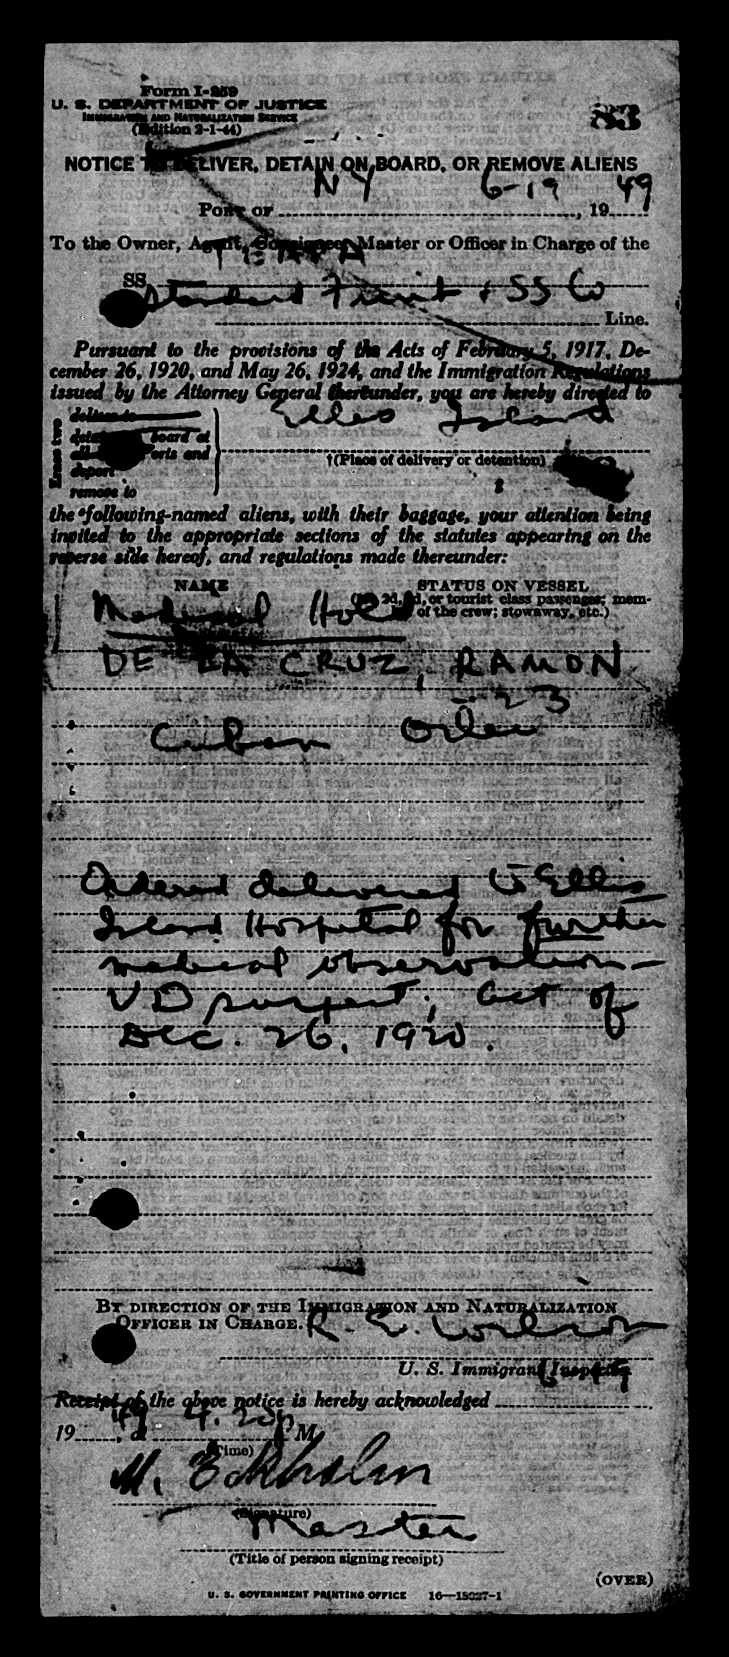 Form I-259
U. S. DEPARTMENT OF JUSTICE
IMMIGRATION AND NATURALIZATION SERVICE
(Edition 2-1-44)
53
NOTICE TO DELIVER, DETAIN ON BOARD, OR REMOVE ALIENS
Port of NY 6-19, 1949
To the Owner, Agent, Consignee, Master or Officer in Charge of the
SS
Standard Fruit + SS Co Line.
Pursuant to the provisions of the Acts of February 5, 1917, De-
cember 26, 1920, and May 26, 1924, and the Immigration Regulations
issued by the Attorney General thereunder, you are hereby directed to
Erase two
deliver to
detain on board at
all ports and
deport
remove to
Elles Island
†(Place of delivery or detention)
the following-named aliens, with their baggage, your attention being
invited to the appropriate sections of the statutes appearing on the
reverse side hereof, and regulations made thereunder:
NAME STATUS ON VESSEL
(1st, 2d, 3d, or tourist class passenger; mem-
ber of the crew; stowaway, etc.)
Medical Hold
DE LA CRUZ, RAMON
23
Cuban Oiler
Ordered delivered to Ellis
Island Hospital for further
medical observation -
VD suspect; act of
Dec. 26, 1920.
BY DIRECTION OF THE IMMIGRATION AND NATURALIZATION
OFFICER IN CHARGE.
R. E. Wilson
U. S. Immigrant Inspector
Receipt of the above notice is hereby acknowledged
1949, at 4:20 P M
(Time)
M. Eckholm
(Signature)
Master
(Title of person signing receipt)
(OVER)
U. S. GOVERNMENT PRINTING OFFICE 16—15027-1